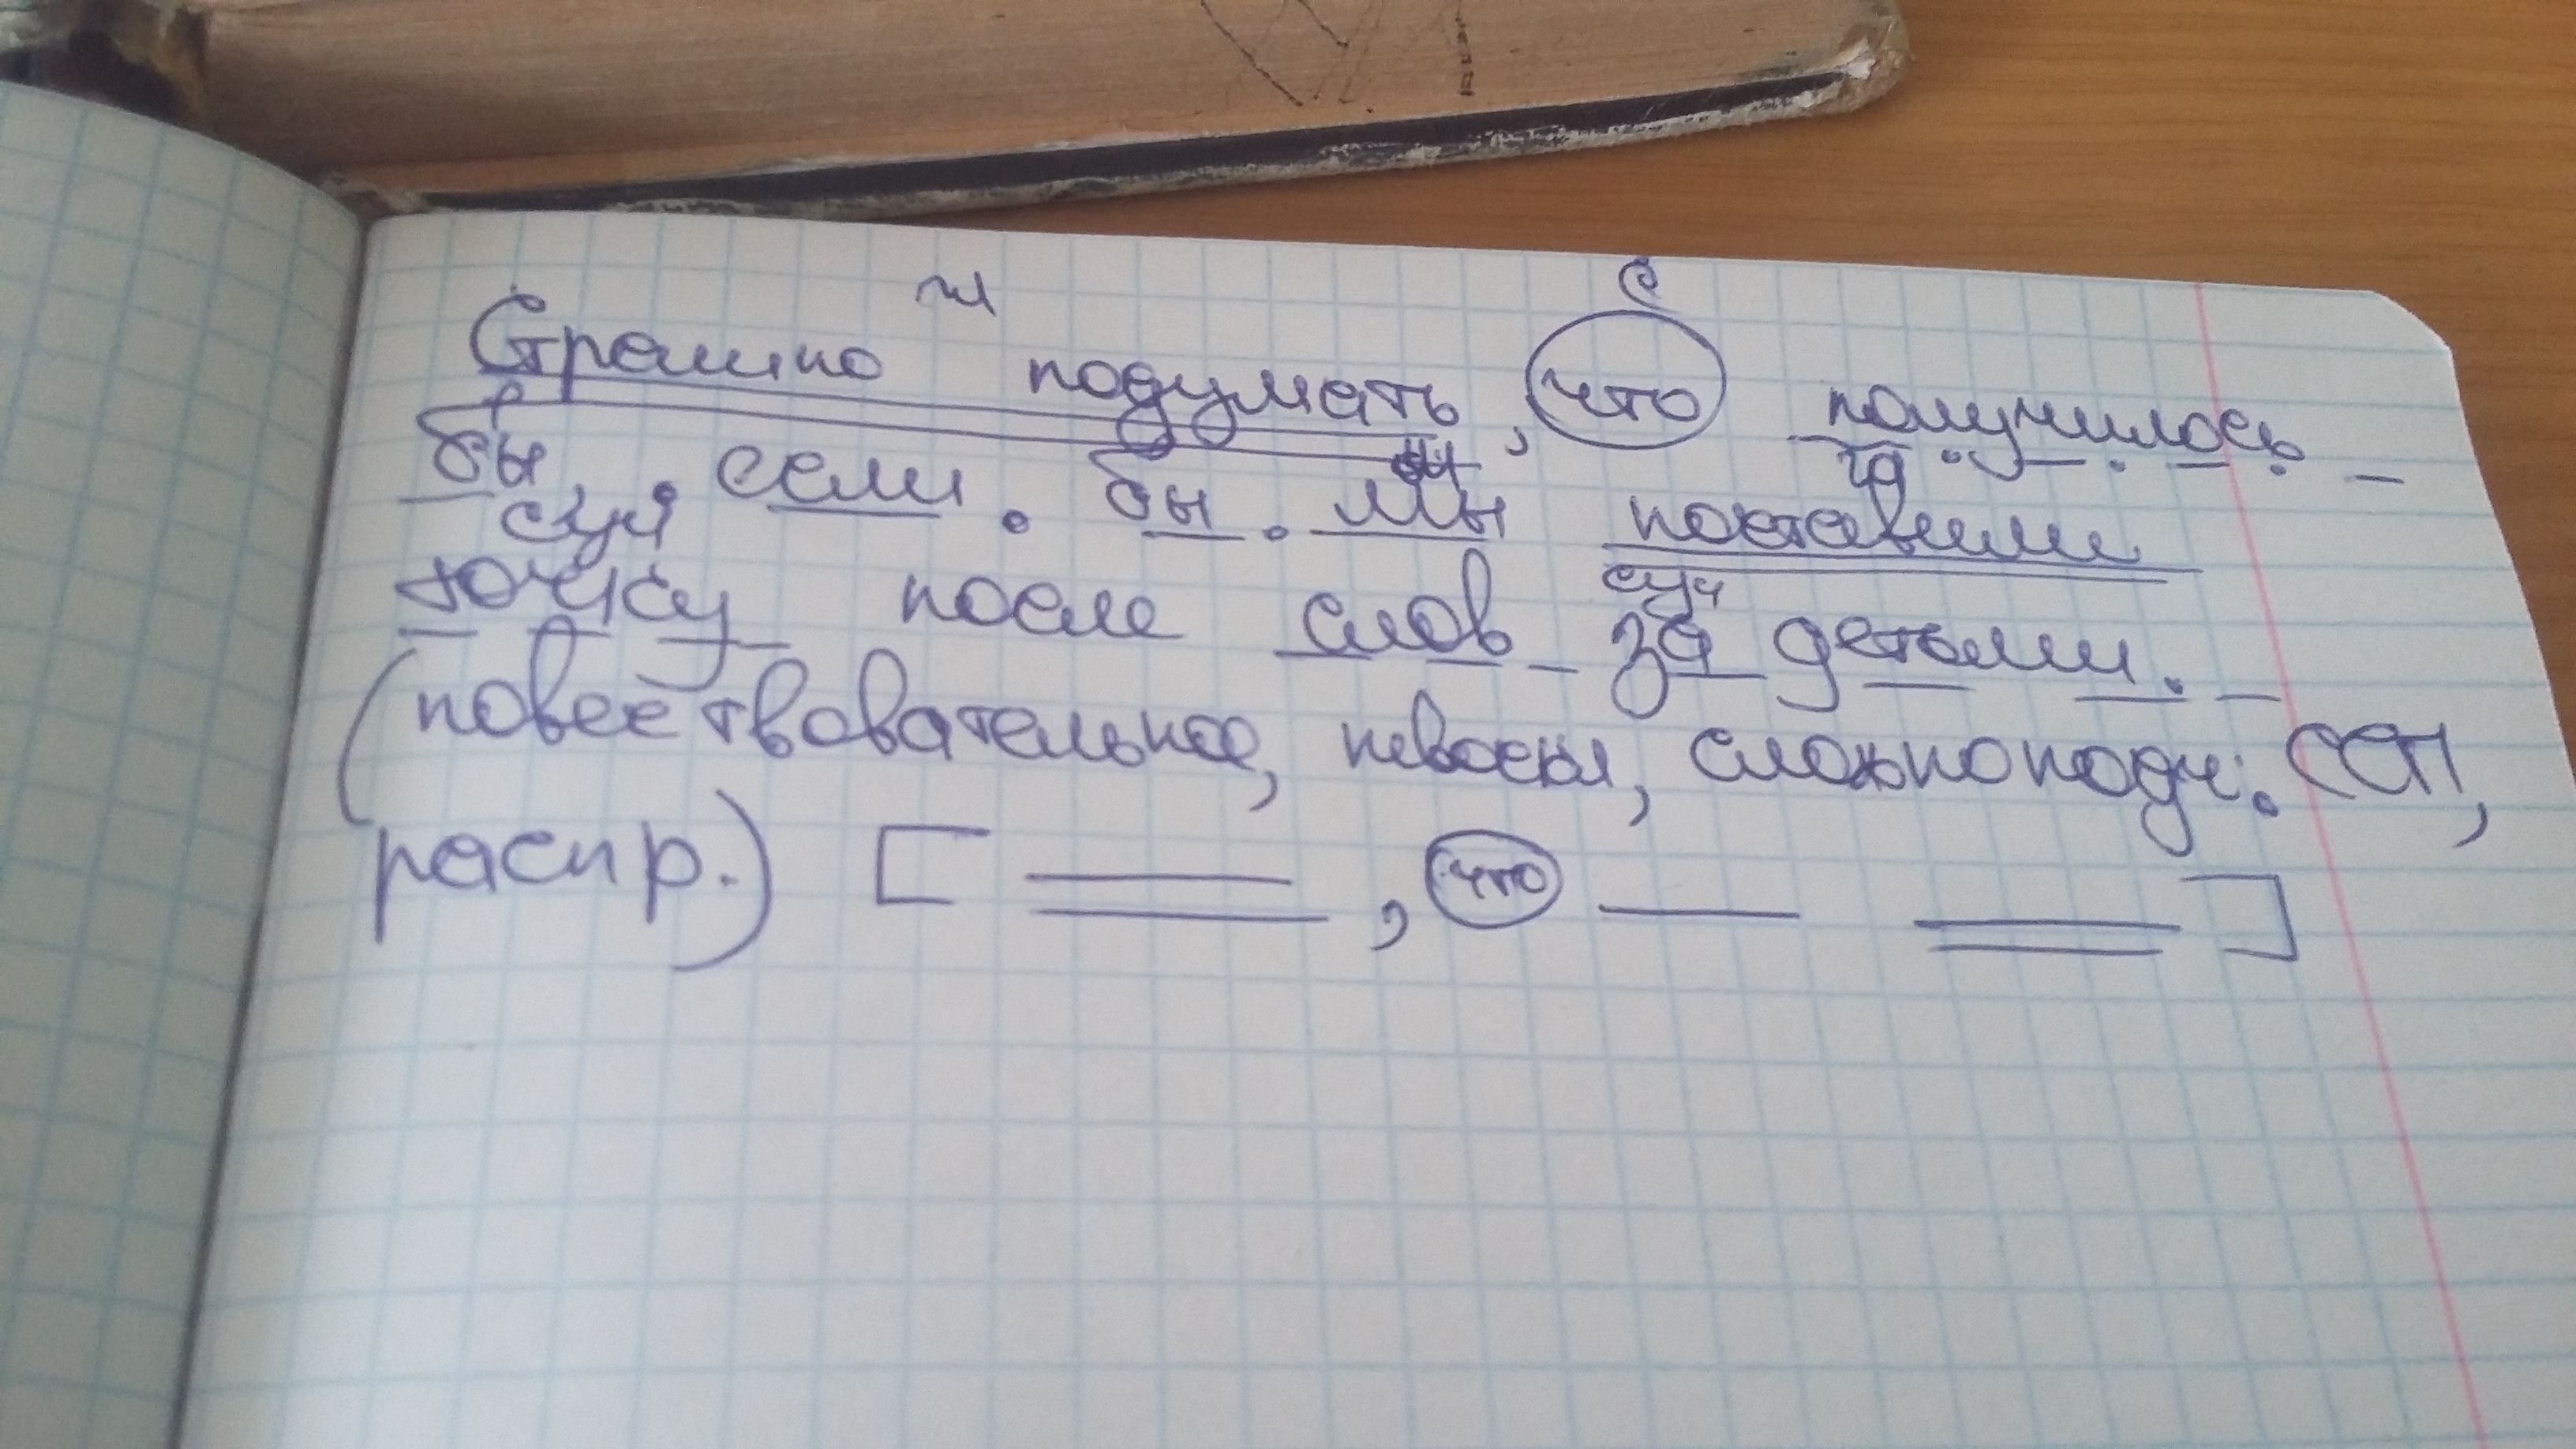 Страшно подумать, что получилось
бы, если бы мы поставили
сущ
точку после слов за детьми.
сущ
(повествовательное, невоскл, сложноподч. ССП,
распр.) [ , что ]